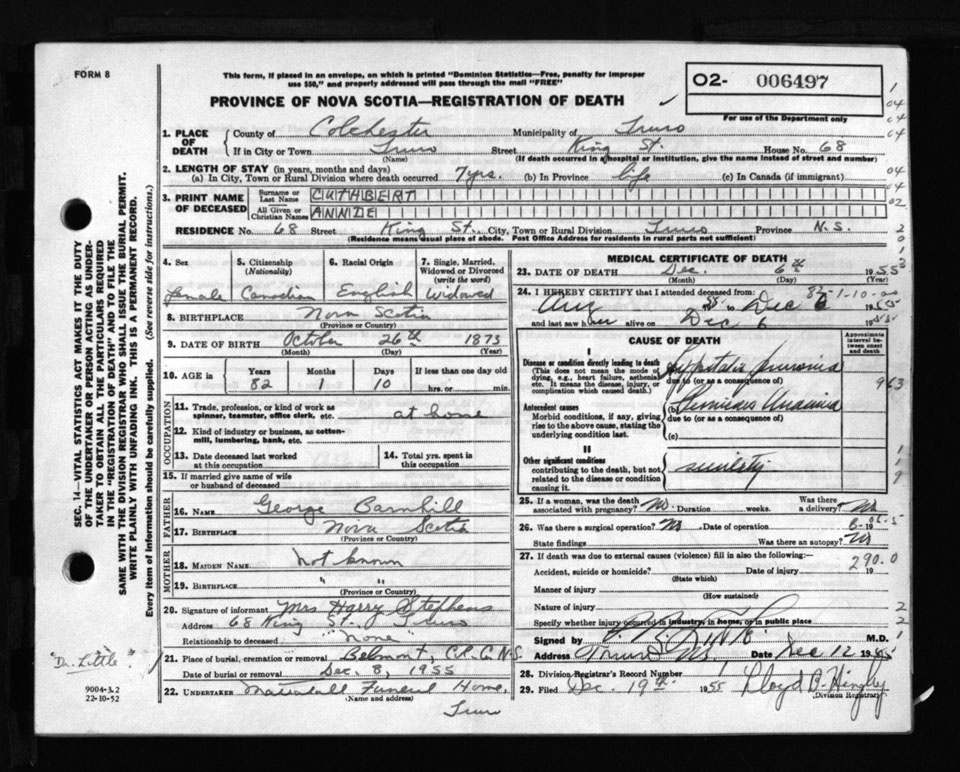 FORM 8
This form, if placed in an envelope, on which is printed "Dominion Statistics—Free, penalty for improper
use $50," and properly addressed will pass through the mail "FREE"
PROVINCE OF NOVA SCOTIA—REGISTRATION OF DEATH
02- 006497
For use of the Department only
1. PLACE OF DEATH
County of Colchester Municipality of Truro
If in City or Town Truro Street King St. House No. 68
(Name) (If death occurred in a hospital or institution, give the name instead of street and number)
2. LENGTH OF STAY (in years, months and days)
(a) In City, Town or Rural Division where death occurred 7 yrs. (b) In Province life (c) In Canada (if immigrant)
3. PRINT NAME OF DECEASED
Surname or Last Name CUTHBERT
All Given or Christian Names ANNIE
RESIDENCE No. 68 Street King St. City, Town or Rural Division Truro Province N.S.
(Residence means usual place of abode. Post Office Address for residents in rural parts not sufficient)
4. Sex 5. Citizenship (Nationality) 6. Racial Origin 7. Single, Married, Widowed or Divorced (write the word)
female Canadian English Widowed
8. BIRTHPLACE Nova Scotia
(Province or Country)
9. DATE OF BIRTH October 26th 1873
(Month) (Day) (Year)
10. AGE in Years Months Days If less than one day old
82 1 10 hrs. or min.
OCCUPATION
11. Trade, profession, or kind of work as spinner, teamster, office clerk, etc. at home
12. Kind of industry or business, as cotton-mill, lumbering, bank, etc.
13. Date deceased last worked at this occupation
14. Total yrs. spent in this occupation
15. If married give name of wife or husband of deceased
FATHER
16. NAME George Barnhill
17. BIRTHPLACE Nova Scotia
(Province or Country)
MOTHER
18. MAIDEN NAME not known
19. BIRTHPLACE " "
(Province or Country)
20. Signature of informant Mrs. Harry Stephens
Address 68 King St., Truro
Relationship to deceased "None"
21. Place of burial, cremation or removal Belmont, N.S.
Date of burial or removal Dec. 8, 1955
22. UNDERTAKER Funeral Home,
(Name and address)
Truro
MEDICAL CERTIFICATE OF DEATH
23. DATE OF DEATH Dec. 6th 1955
24. I HEREBY CERTIFY that I attended deceased from 82-1-10
Aug 55 to Dec 6 1955
and last saw her alive on Dec 6 1955
CAUSE OF DEATH
Approximate interval between onset and death
I
Disease or condition directly leading to death
(This does not mean the mode of dying, e.g., heart failure, asthenia, etc. It means the disease, injury, or complication which caused death.)
Hypostatic Pneumonia
due to (or as a consequence of)
Antecedent causes
Morbid conditions, if any, giving rise to the above cause, stating the underlying condition last.
(b) Pernicious Anaemia
due to (or as a consequence of)
(c)
II
Other significant conditions
contributing to the death, but not related to the disease or condition causing it.
senility
25. If a woman, was the death associated with pregnancy? No. Duration weeks. Was there a delivery? No
26. Was there a surgical operation? No Date of operation
State findings Was there an autopsy? No
27. If death was due to external causes (violence) fill in also the following:—
Accident, suicide or homicide? Date of injury 19
(State which)
290.0
Manner of injury
(How sustained)
Nature of injury
Specify whether injury occurred in industry, in home, or in public place
Signed by M.D.
Address Truro NS Date Dec 12 1955
28. Division Registrar's Record Number
29. Filed Dec. 19th 1955 Lloyd B. Hingley
Division Registrar
SEC. 14—VITAL STATISTICS ACT MAKES IT THE DUTY
OF THE UNDERTAKER OR PERSON ACTING AS UNDER-
TAKER TO OBTAIN ALL THE PARTICULARS REQUIRED
IN THE "REGISTRATION OF DEATH" AND TO FILE THE
SAME WITH THE DIVISION REGISTRAR WHO SHALL ISSUE THE BURIAL PERMIT.
WRITE PLAINLY WITH UNFADING INK. THIS IS A PERMANENT RECORD.
Every item of information should be carefully supplied. (See reverse side for instructions.)
"Dr. Little"
9004-3.2
22-10-52